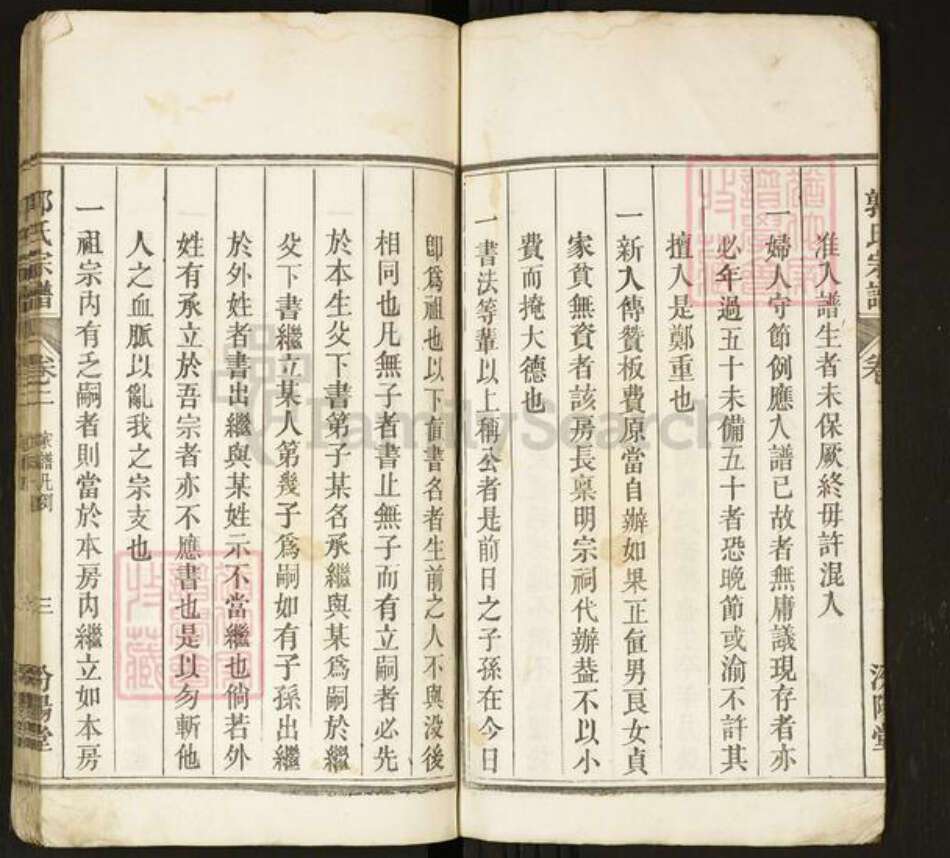 准入譜生者未保厥終毋許混入
一婦人守節例應入譜已故者無庸議現存者亦
必年過五十未備五十者恐晚節或渝不許其
擅入是鄭重也
一新入傳贊板費原當自辦如果正直男良女貞
家貧無資者該房長稟明宗祠代辦葢不以小
費而掩大德也
一書法等輩以上稱公者是前日之子孫在今日
卽爲祖也以下直書名者生前之人不與没後
相同也凡無子者書止無子而有立嗣者必先
於本生父下書第子某名承繼與某爲嗣於繼
父下書繼立某人第幾子爲嗣如有子孫出繼
於外姓者書出繼與某姓示不當繼也倘若外
姓有承立於吾宗者亦不應書也是以勿斬他
人之血脈以亂我之宗支也
一祖宗内有乏嗣者則當於本房内繼立如本房
郭氏宗譜
卷二
家譜凡例
三
汾陽堂
FamilySearch